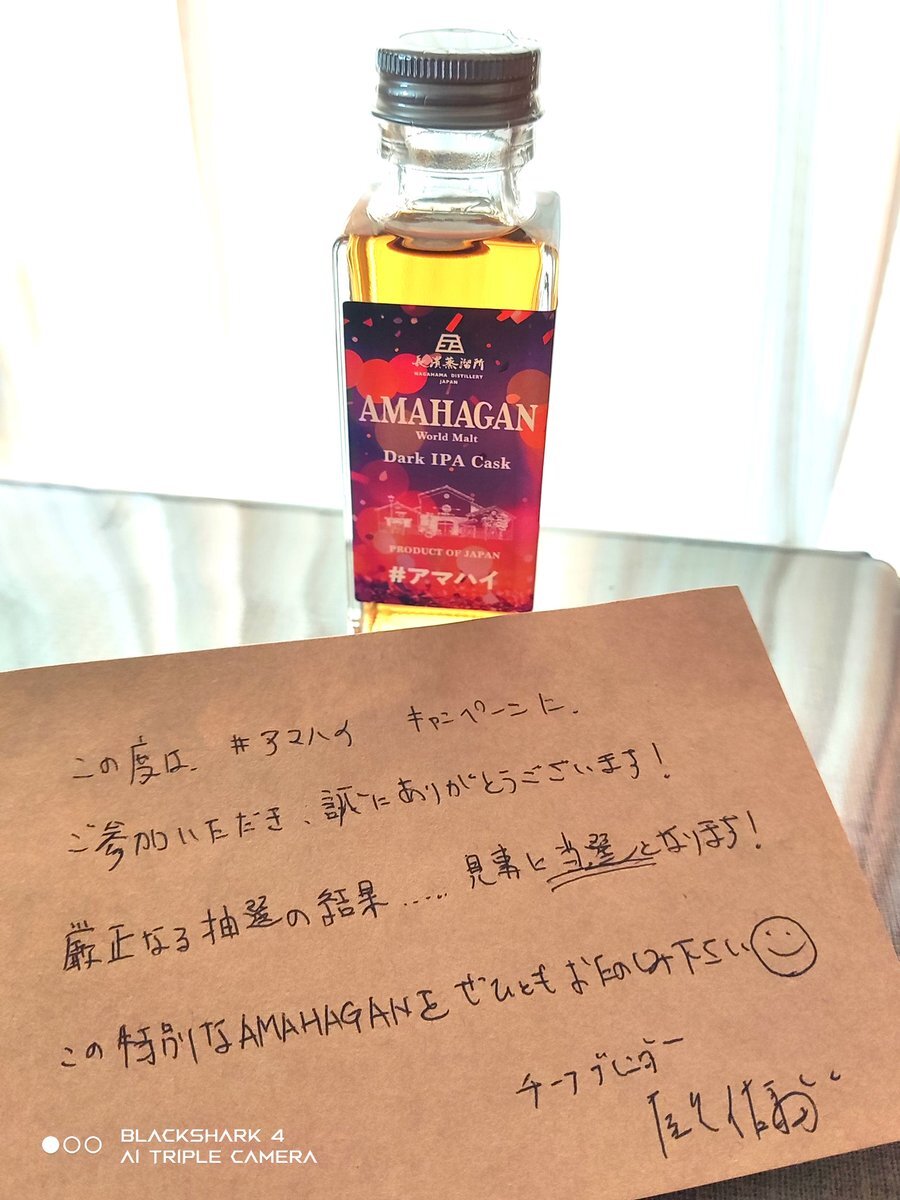 長濱蒸溜所
NAGAHAMA DISTILLERY
JAPAN
AMAHAGAN
World Malt
Dark IPA Cask
PRODUCT OF JAPAN
#アマハイ
この度は、#アマハイ キャンペーンに、
ご参加いただき、誠にありがとうございます!
厳正なる抽選の結果……見事に当選となります!
この特別なAMAHAGANをぜひともおたのしみ下さい
チーフブレンダー
BLACKSHARK 4
AI TRIPLE CAMERA